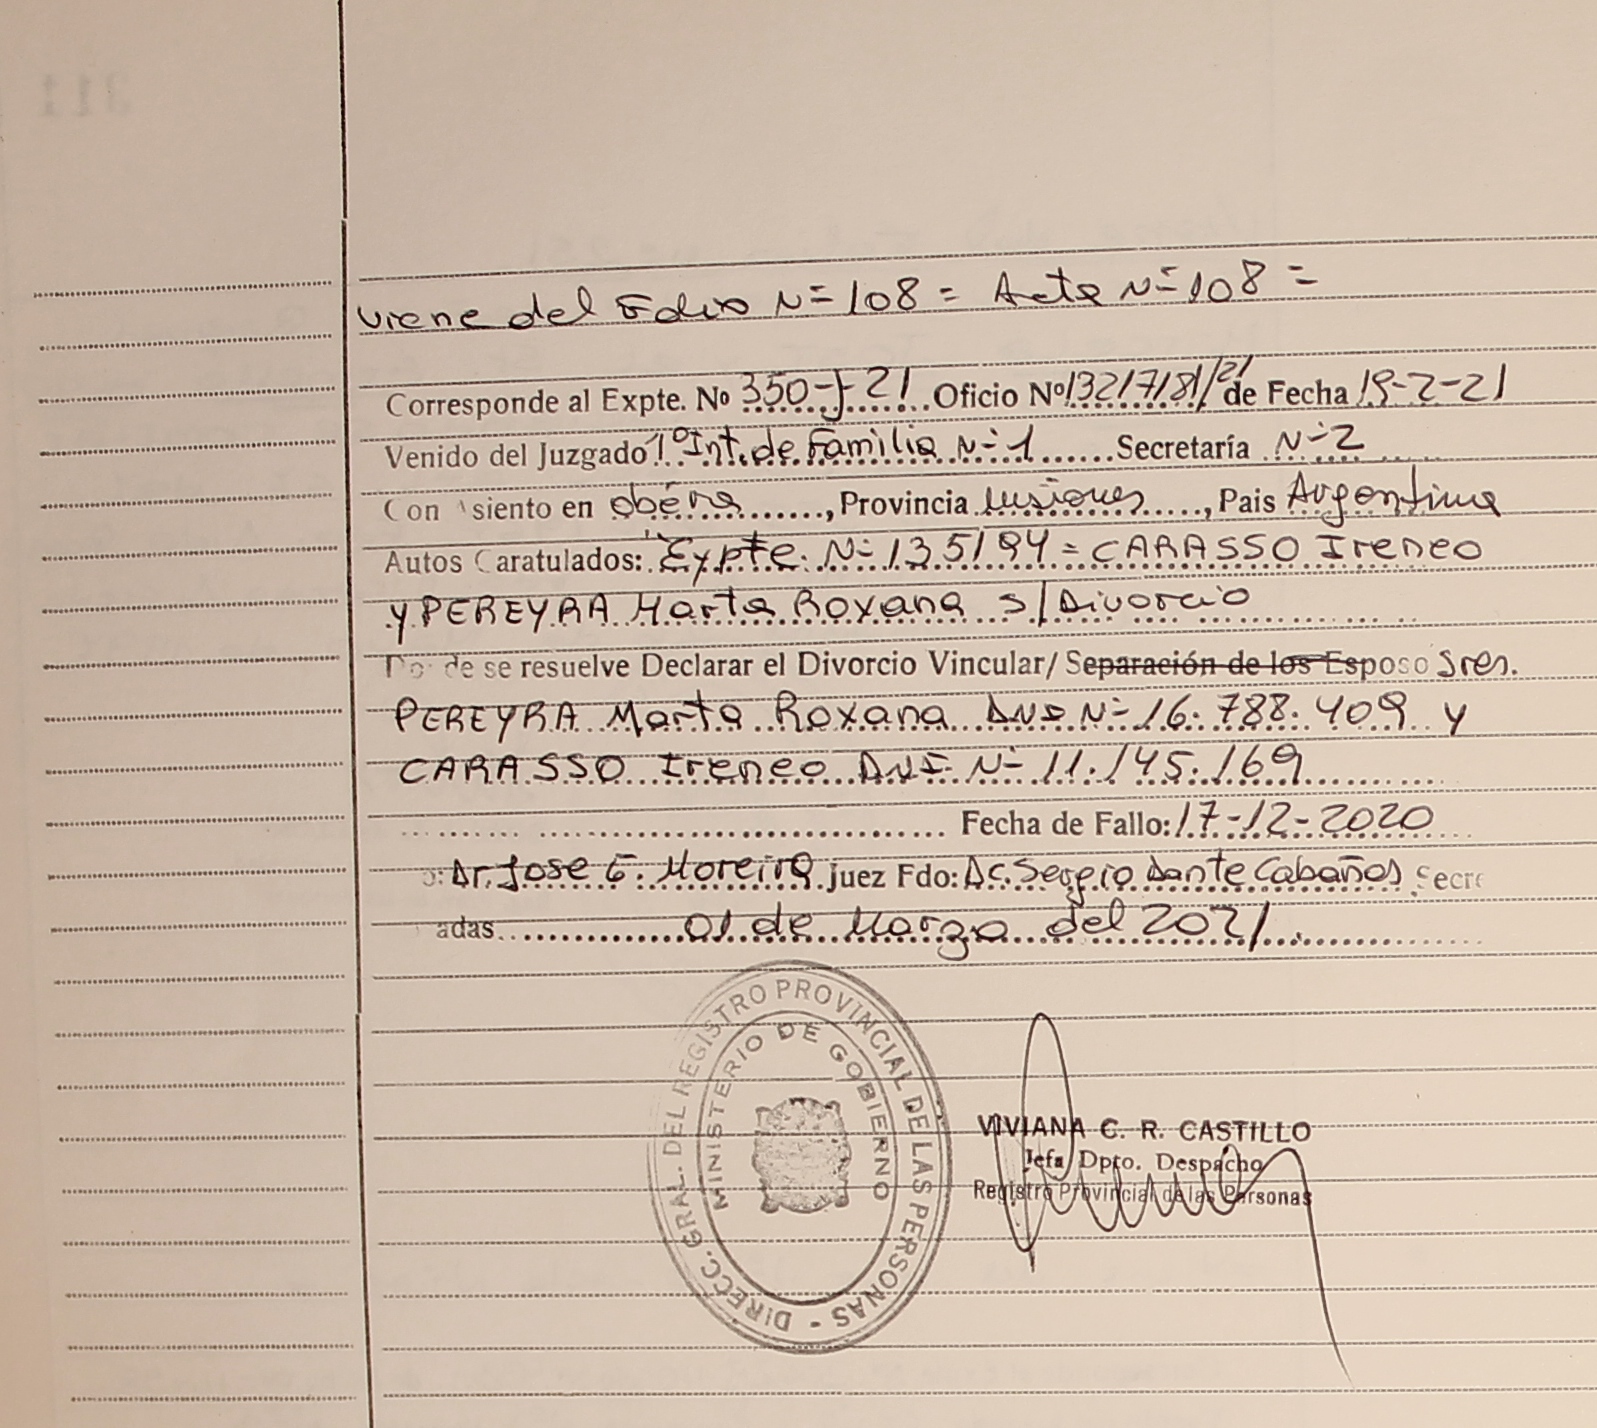 311
viene del Folio N= 108 = Acta N= 108 =
Corresponde al Expte. No 350-J-21 Oficio Nº 13217181/21 de Fecha 19-2-21
Venido del Juzgado 1º Int. de Familia N= 1 ...... Secretaría N= 2
Con Asiento en Oberá ......, Provincia Misiones ....., Pais Argentina
Autos Caratulados: "Expte. N= 135194 = CARASSO Ireneo
y PEREYRA Marta Roxana s/ Divorcio
Donde se resuelve Declarar el Divorcio Vincular/ Separación de los Esposo Sres.
PEREYRA Marta Roxana DNI N= 16.788.409 y
CARASSO Ireneo DNI N= 11.145.169
Fecha de Fallo: 17-12-2020
o: Dr. Jose G. Moreira juez Fdo: Dr. Sergio Dante Cabaños Secre
adas ...... 01 de Marzo del 2021.
DIRECC. GRAL. DEL REGISTRO PROVINCIAL DE LAS PERSONAS -
MINISTERIO DE GOBIERNO
VIVIANA C. R. CASTILLO
Jefa Dpto. Despacho
Registro Provincial de las Personas